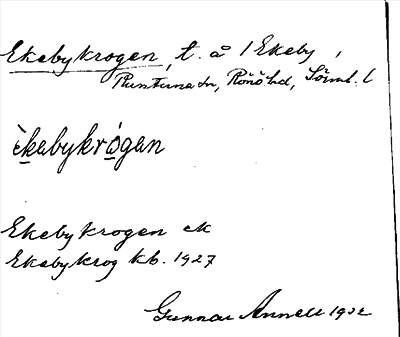 Ekebykrogen, t. å 1 Ekeby,
Runtuna sn, Rönö hd, Sörml. l
èkebykrógen
Ekebykrogen ek
Ekebykrog kb. 1927
Gunnar Annell 1932